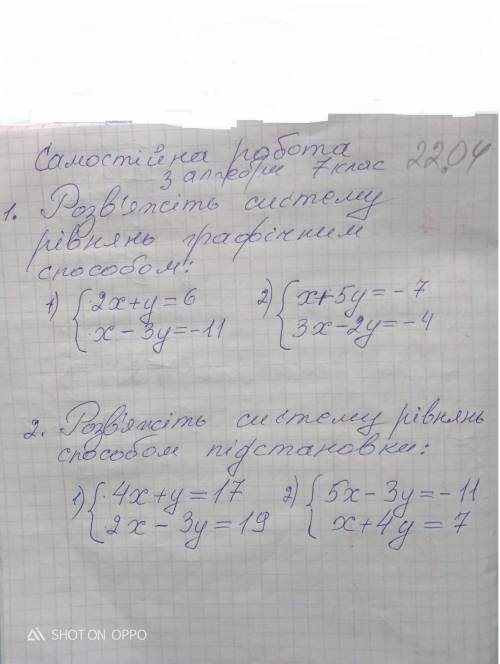 Самостійна робота
з алгебри 7 клас 22.04
1. Розв'яжіть систему
рівнянь графічним
способом:
1) { 2x+y=6 2) { x+5y=-7
x-3y=-11 3x-2y=-4
2. Розв'яжіть систему рівнянь
способом підстановки:
1) { 4x+y=17 2) { 5x-3y=-11
2x-3y=19 x+4y=7
SHOT ON OPPO